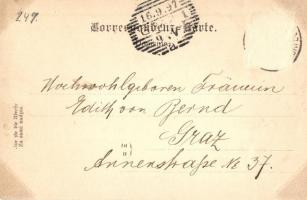 249.
Correspondenz-Karte.
16.9.97
Hochwohlgeboren Fräulein
Edith von Bernd
Graz
Annenstraße № 37.